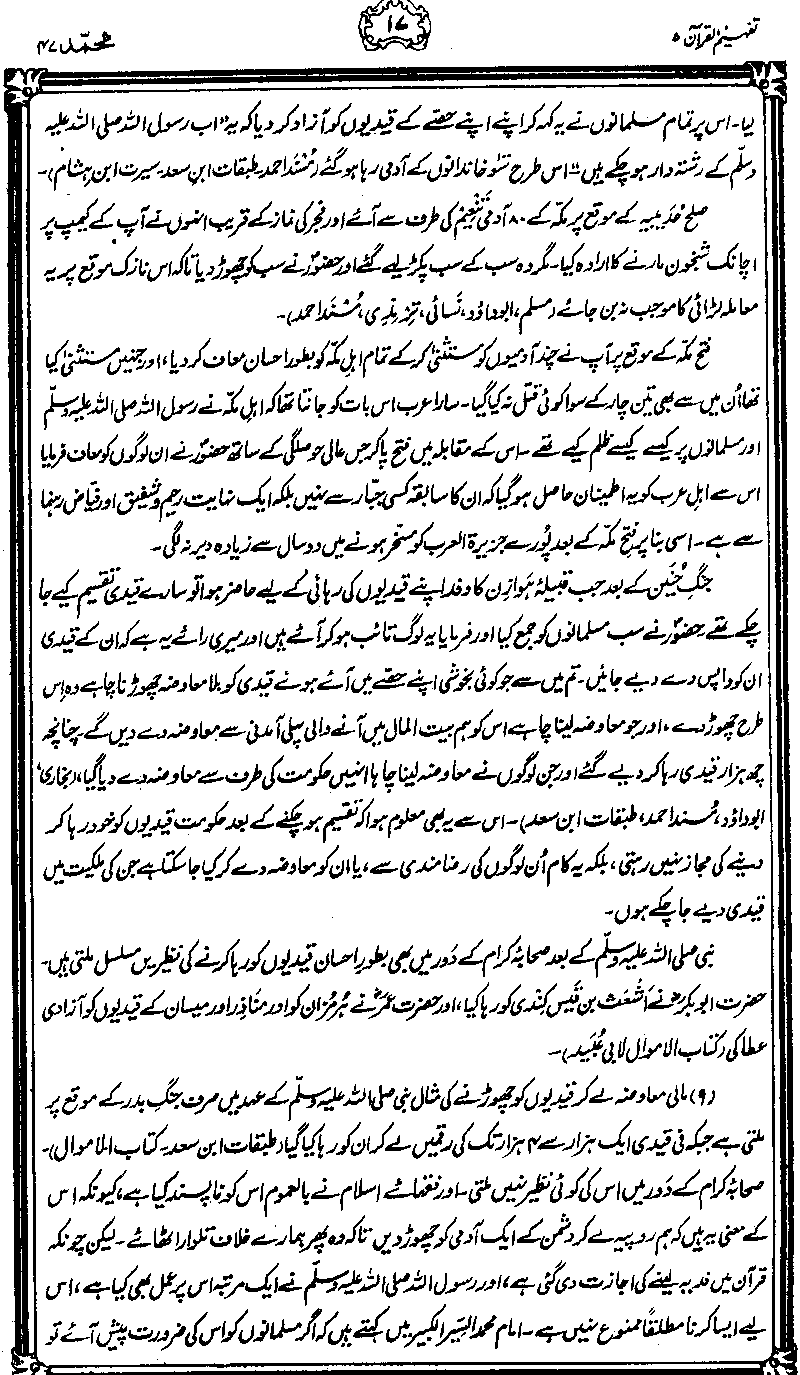 تفہیم القرآن ۵
۱۷
محمد ۴۷
لیا۔ اس پر تمام مسلمانوں نے یہ کہہ کر اپنے اپنے حصّے کے قیدیوں کو آزاد کر دیا کہ یہ ”اب رسول اللہ صلی اللہ علیہ
وسلّم کے رشتہ دار ہو چکے ہیں“ اس طرح سَو خاندانوں کے آدمی رہا ہو گئے (مُسنَد احمد۔ طبقات ابنِ سعد۔ سیرت ابن ہشام)۔
صلح حُدَیبیہ کے موقع پر مکّہ کے ۸۰ آدمی تَنْعِیم کی طرف سے آئے اور فجر کی نماز کے قریب انہوں نے آپ کے کیمپ پر
اچانک شبخون مارنے کا ارادہ کیا۔ مگر وہ سب کے سب پکڑ لیے گئے اور حضورؐ نے سب کو چھوڑ دیا تاکہ اس نازک موقع پر یہ
معاملہ لڑائی کا موجب نہ بن جائے (مسلم، ابوداؤد، نَسائی، تِرمِذی، مُسنَد احمد)۔
فتح مکّہ کے موقع پر آپ نے چند آدمیوں کو مستثنیٰ کر کے تمام اہلِ مکّہ کو بطور احسان معاف کر دیا، اور جنہیں مستثنیٰ کیا
تھا اُن میں سے بھی تین چار کے سوا کوئی قتل نہ کیا گیا۔ سارا عرب اس بات کو جانتا تھا کہ اہلِ مکّہ نے رسول اللہ صلی اللہ علیہ وسلّم
اور مسلمانوں پر کیسے کیسے ظلم کیے تھے۔ اس کے مقابلہ میں فتح پا کر جس عالی حوصلگی کے ساتھ حضورؐ نے ان لوگوں کو معاف فرمایا
اس سے اہلِ عرب کو یہ اطمینان حاصل ہو گیا کہ ان کا سابقہ کسی جبّار سے نہیں بلکہ ایک نہایت رحیم و شفیق اور فیّاض رہنما
سے ہے۔ اسی بنا پر فتح مکّہ کے بعد پُورے جزیرۃ العرب کو مسخّر ہونے میں دو سال سے زیادہ دیر نہ لگی۔
جنگِ حُنَین کے بعد جب قبیلۂ ہَوازِن کا وفد اپنے قیدیوں کی رہائی کے لیے حاضر ہوا تو سارے قیدی تقسیم کیے جا
چکے تھے۔ حضورؐ نے سب مسلمانوں کو جمع کیا اور فرمایا یہ لوگ تائب ہو کر آئے ہیں اور میری رائے یہ ہے کہ ان کے قیدی
ان کو واپس دے دیے جائیں۔ تم میں سے جو کوئی بخوشی اپنے حصّے میں آئے ہوئے قیدی کو بلا معاوضہ چھوڑنا چاہے وہ اِس
طرح چھوڑ دے، اور جو معاوضہ لینا چاہے اس کو ہم بیت المال میں آنے والی پہلی آمدنی سے معاوضہ دے دیں گے۔ چنانچہ
چھ ہزار قیدی رہا کر دیے گئے اور جن لوگوں نے معاوضہ لینا چاہا انہیں حکومت کی طرف سے معاوضہ دے دیا گیا، (بخاری،
ابوداؤد، مُسند احمد، طبقات ابن سعد)۔ اس سے یہ بھی معلوم ہوا کہ تقسیم ہو چکنے کے بعد حکومت قیدیوں کو خود رہا کر
دینے کی مجاز نہیں رہتی، بلکہ یہ کام اُن لوگوں کی رضامندی سے، یا ان کو معاوضہ دے کر کیا جا سکتا ہے جن کی ملکیت میں
قیدی دیے جا چکے ہوں۔
نبی صلی اللہ علیہ وسلّم کے بعد صحابۂ کرام کے دَور میں بھی بطورِ احسان قیدیوں کو رہا کرنے کی نظیریں مسلسل ملتی ہیں۔
حضرت ابوبکرؓ نے اَشْعَث بن قَیس کِندی کو رہا کیا، اور حضرت عمرؓ نے ہُرمُزان کو اور مَناذِر اور میسان کے قیدیوں کو آزادی
عطا کی (کتاب الاموال لابی عُبَید)۔
(۹) مالی معاوضہ لے کر قیدیوں کو چھوڑنے کی مثال نبی صلی اللہ علیہ وسلّم کے عہد میں صرف جنگِ بدر کے موقع پر
ملتی ہے جبکہ فی قیدی ایک ہزار سے ۴ ہزار تک کی رقمیں لے کر ان کو رہا کیا گیا (طبقات ابن سعد۔ کتاب الاموال)۔
صحابۂ کرام کے دَور میں اس کی کوئی نظیر نہیں ملتی۔ اور فقہائے اسلام نے بالعموم اس کو ناپسند کیا ہے، کیونکہ اس
کے معنی یہ ہیں کہ ہم روپیہ لے کر دشمن کے ایک آدمی کو چھوڑ دیں تاکہ وہ پھر ہمارے خلاف تلوار اٹھائے۔ لیکن چونکہ
قرآن میں فدیہ لینے کی اجازت دی گئی ہے، اور رسول اللہ صلی اللہ علیہ وسلّم نے ایک مرتبہ اس پر عمل بھی کیا ہے، اس
لیے ایسا کرنا مطلقاً ممنوع نہیں ہے۔ امام محمد السِّیَر الکبیر میں کہتے ہیں کہ اگر مسلمانوں کو اس کی ضرورت پیش آئے تو